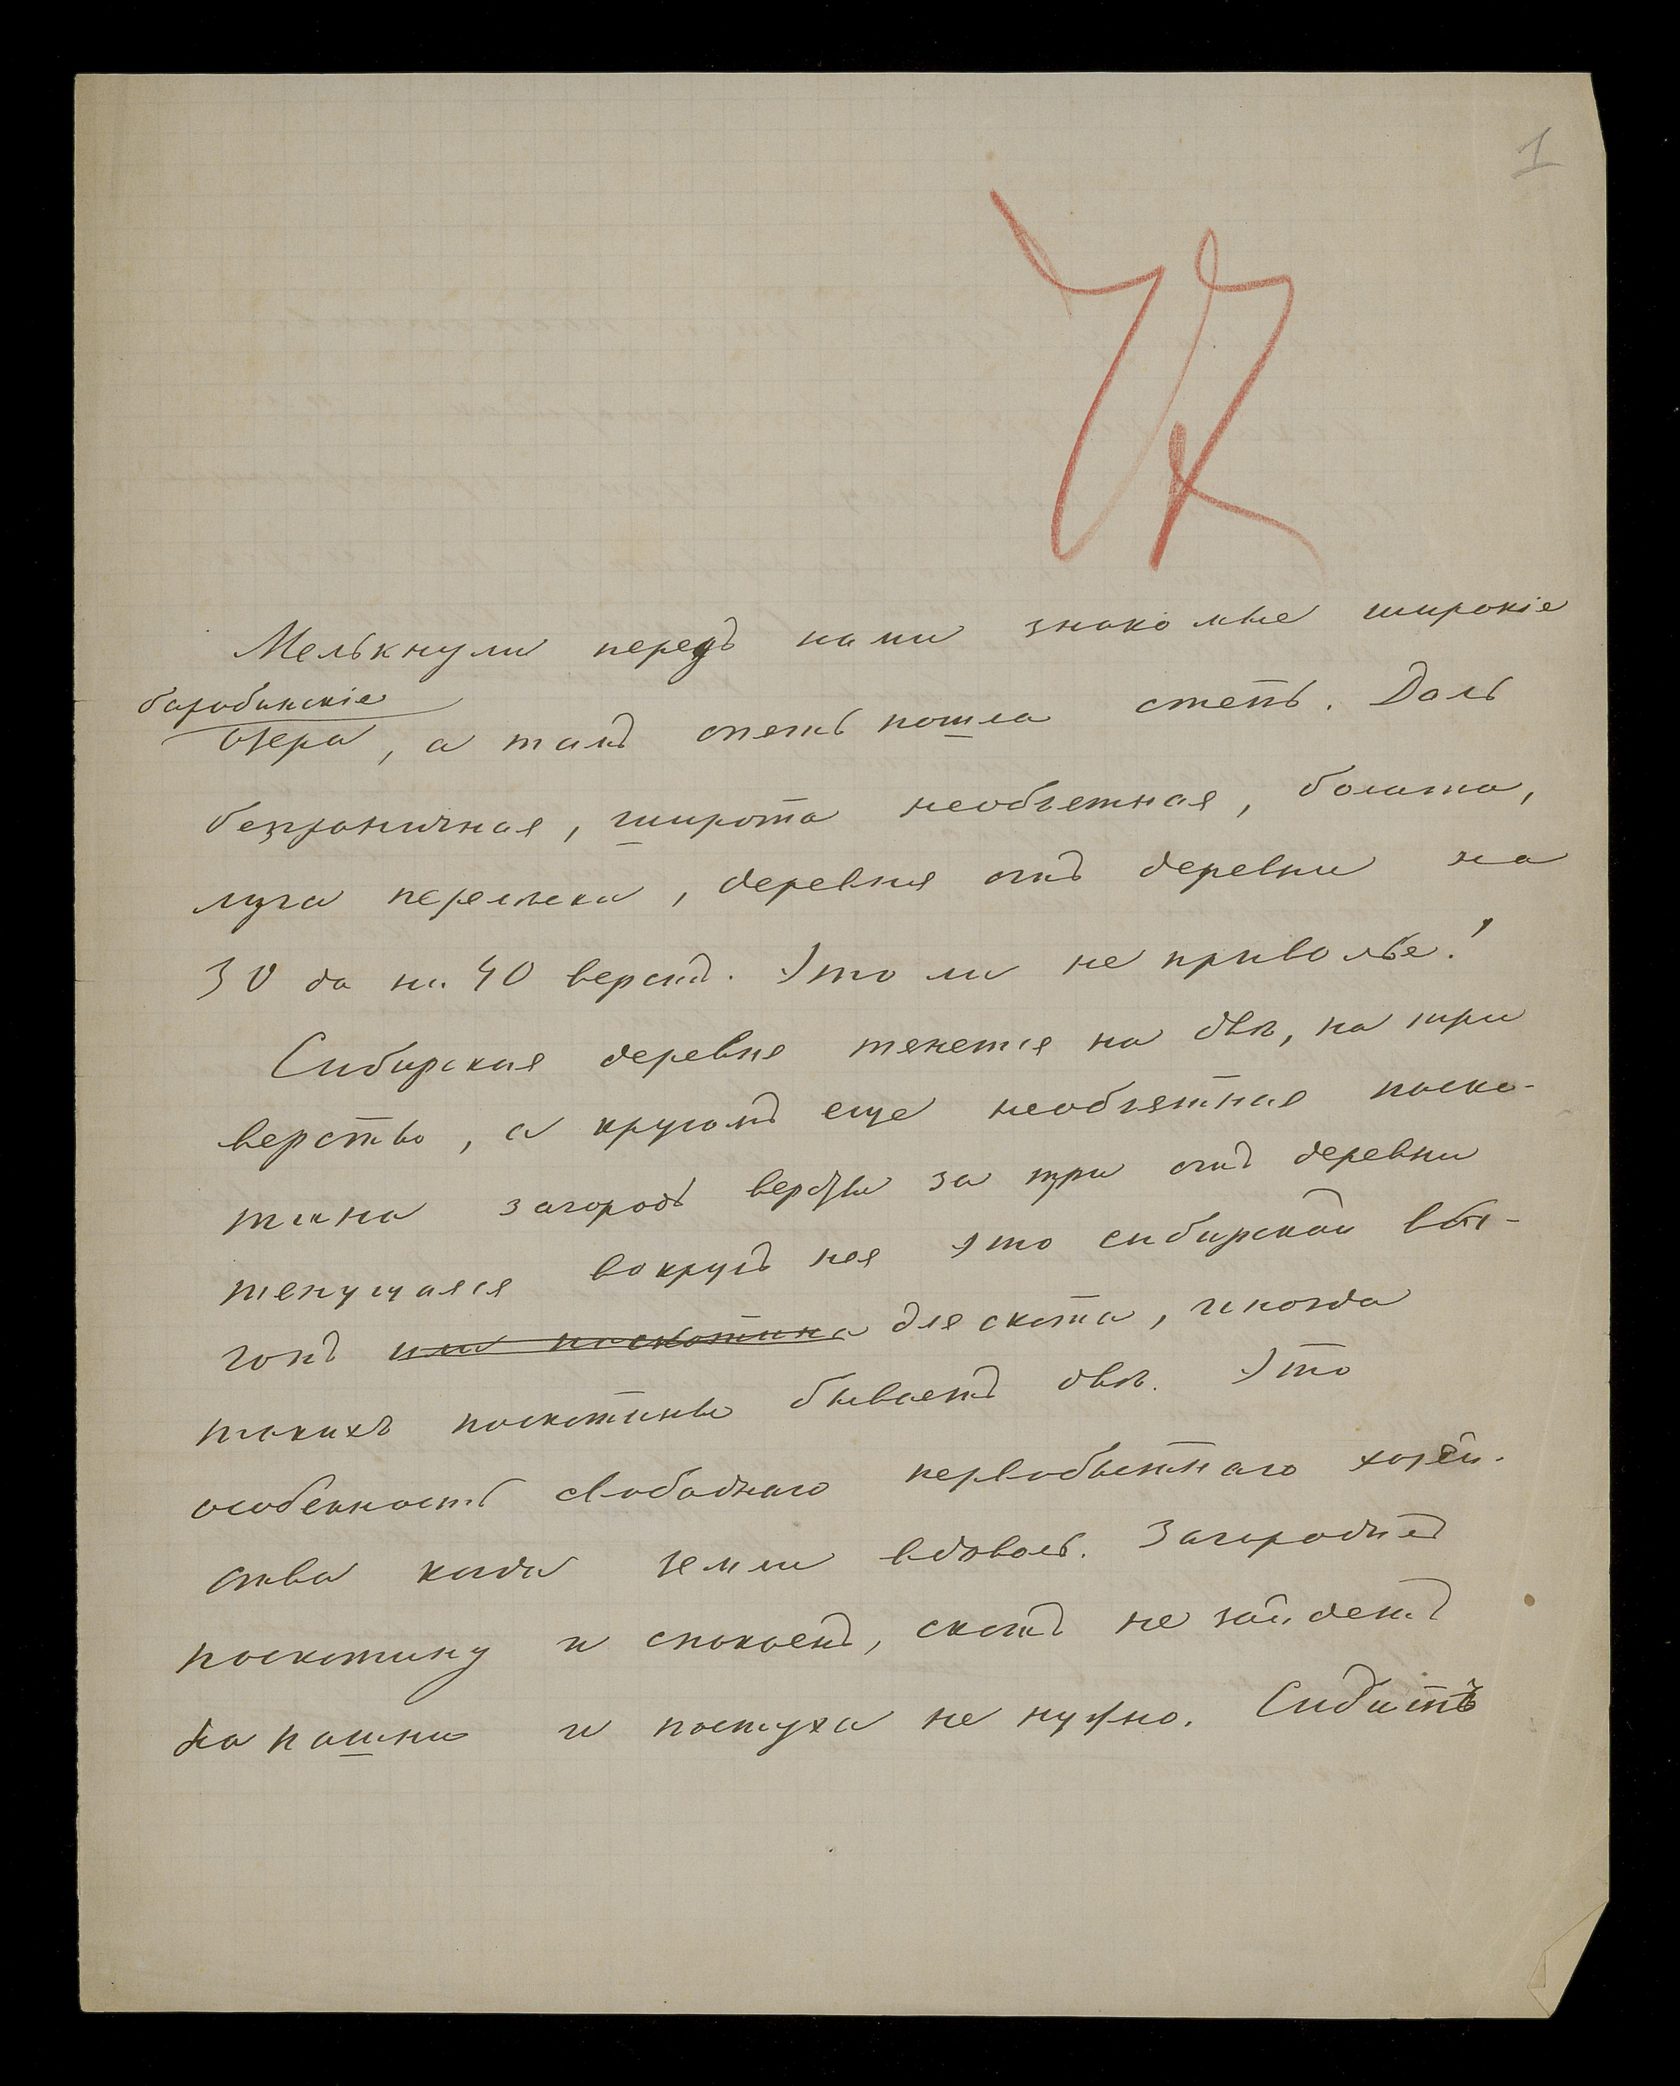 1
Мелькнули передъ нами знакомые широкіе
барабинскіе
озера, а тамъ опять пошла степь. Даль
безграничная, широта необъетная, болота,
луга перелѣски, деревня отъ деревни на
30 да на 40 верстъ. Это ли не приволье!
Сибирская деревня тянется на двѣ, на три
версты, а кругомъ еще необъятная поско-
тина загородь версты за три отъ деревни
тянущаяся вокругъ нея это сибирской вы-
гонъ или поскотина для скота, иногда
такихъ поскотины бываетъ двѣ. Это
особенность свободнаго первобытнаго хозяй-
ства когда земли вдоволь. Загородилъ
поскотину и спокоенъ, скотъ не зайдетъ
на пашни и пастуха не нужно. Сидитъ